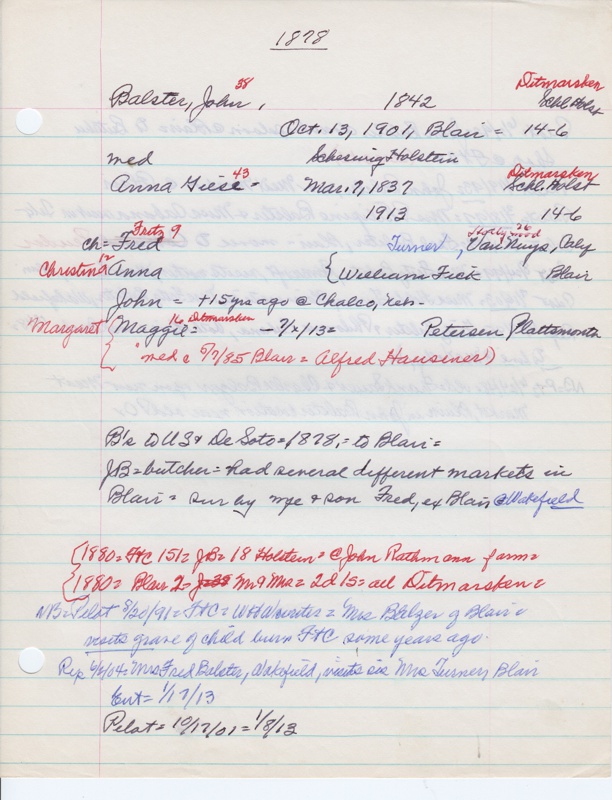 1878
38 Ditmarsken
Balster, John, 1842 Schl. Holst
Oct. 13, 1901, Blair = 14-6
med Scheswig Holstein
43 Ditmarsken
Anna Giese - Mar. 7, 1837 Schl. Holst
1913 14-6
Fritz 9 26
ch = Fred Turner, Van Nuys, Caly
12
Christina Anna { William Fick Blair
John = +15 yrs ago @ Chalco, Neb-
16 Ditmarsken
Margaret { Maggie = - 7/x/13 = Petersen Plattsmouth
"med c 5/7/85 Blair = Alfred Hausiner)
B's to US & De Soto = 1878, = to Blair =
JB = butcher = had several different markets in
Blair = sur by wife & son Fred, ex Blair @ Wakefield
{ 1880 = FtC 151 = JB = 18 Holstein = @ John Rathmann farm =
{ 1880 = Blair 2 = J 38 Mr & Mrs = 2d 15 = all Ditmarsken =
NB = Pilot 8/20/91 = FtC = = Mrs Balzer of Blair =
visits grave of child burn FtC some years ago.
Rep 6/6/04 = Mrs Fred Balster, Wakefield, visits sis Mrs Turner, Blair
Ent = 1/17/13
Pilot = 10/17/01 = 1/8/13